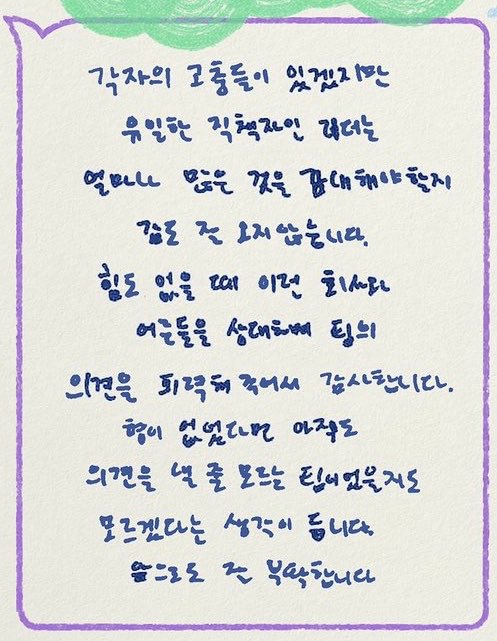 각자의 고충들이 있겠지만
유일한 직책자인 리더는
얼마나 많은 것을 감내해야 할지
감도 잘 오지 않습니다.
힘도 없을 때 이런 회사다
어른들을 상대하며 팀의
의견을 피력해 주어서 감사합니다.
형이 없었다면 아직도
의견을 낼 줄 모르는 팀이었을지도
모르겠다는 생각이 듭니다.
앞으로도 잘 부탁합니다